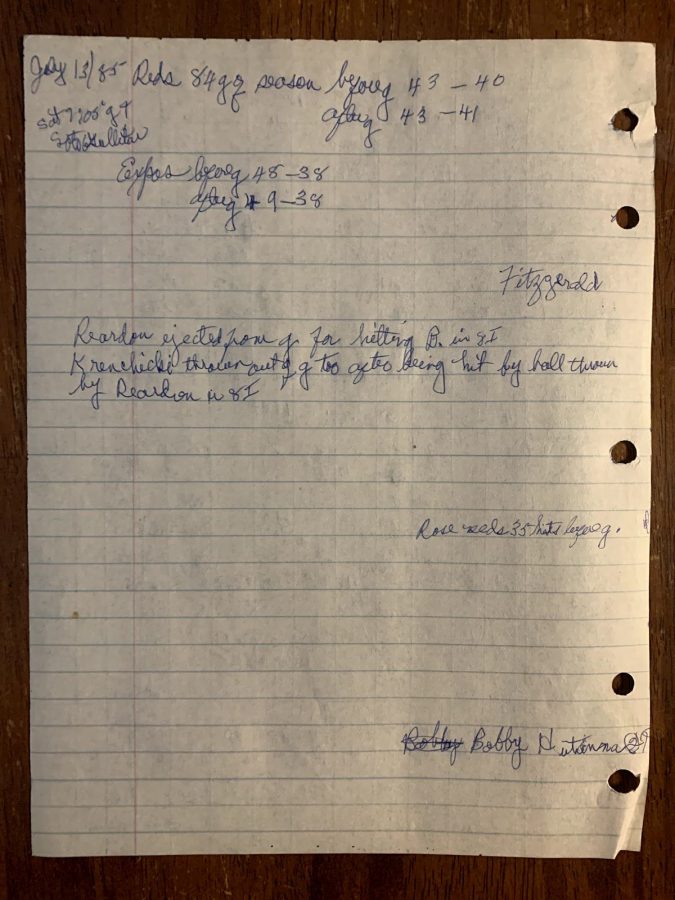 July 13/85 Reds 84 g of season before g 43 - 40
Sat 7:05 g t after g 43 - 41
Soto Gullickson
Expos before g 48 - 38
after g 49 - 38
Fitzgerald
Reardon ejected from g for hitting B. in 8I
Krenchicki thrown out of g too after being hit by ball thrown
by Reardon in 8I
Rose needs 35 hits before g.
Bobby Bobby